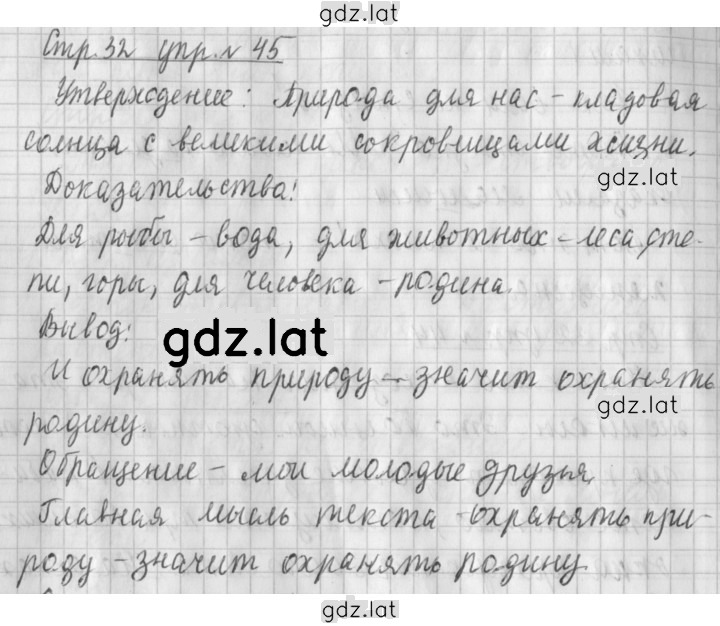 gdz.lat
Стр. 32 упр. № 45
Утверждение: Природа для нас - кладовая
солнца с великими сокровищами жизни.
gdz.lat
Доказательства:
Для рыбы - вода, для животных - леса, сте-
пи, горы, для человека - родина.
Вывод:
gdz.lat
И охранять природу - значит охранять
gdz.lat
родину.
Обращение - мои молодые друзья.
Главная мысль текста - охранять при-
роду - значит охранять родину
gdz.lat